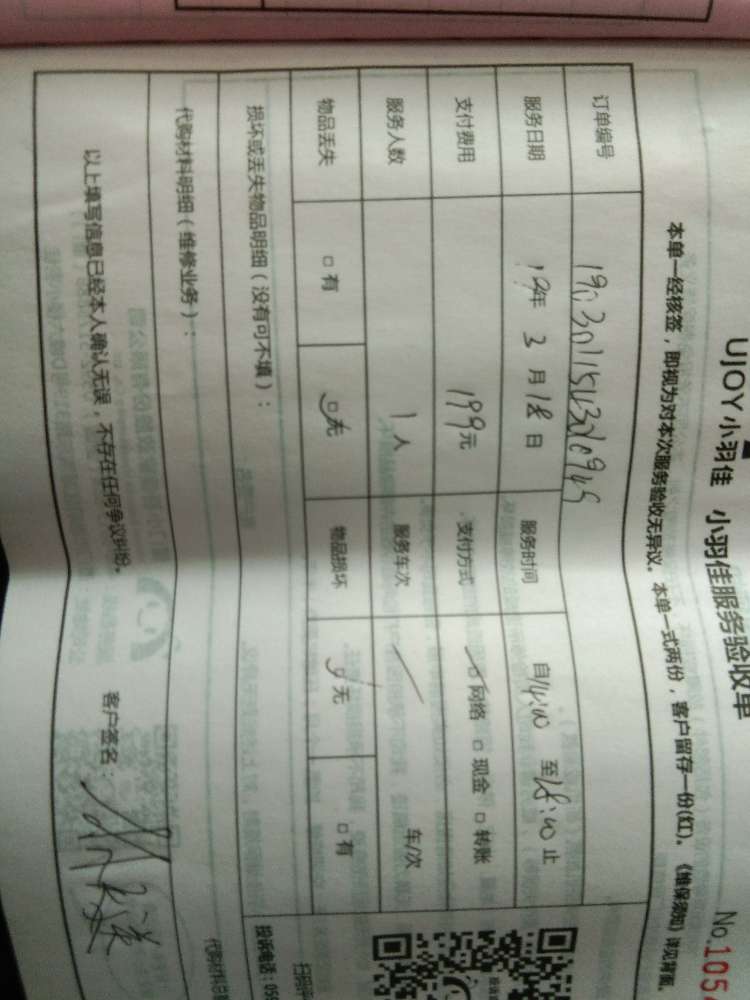 UJOY小羽佳 小羽佳服务验收单
No.105
本单一经核签，即视为对本次服务验收无异议。本单一式两份，客户留存一份(红)。《维保须知》详见背面。
订单编号
服务日期 19年 3月18日 服务时间 自14:00 至18:00止
支付费用 199元 支付方式 网络 □现金 □转账
服务人数 1人 服务车次 / 车/次
物品丢失 □有 □无 物品损坏 □无 □有
损坏或丢失物品明细（没有可不填）：
代购材料明细（维修业务）：
以上填写信息已经本人确认无误，不存在任何争议纠纷。 客户签名：
投诉电话：05
代购材料总